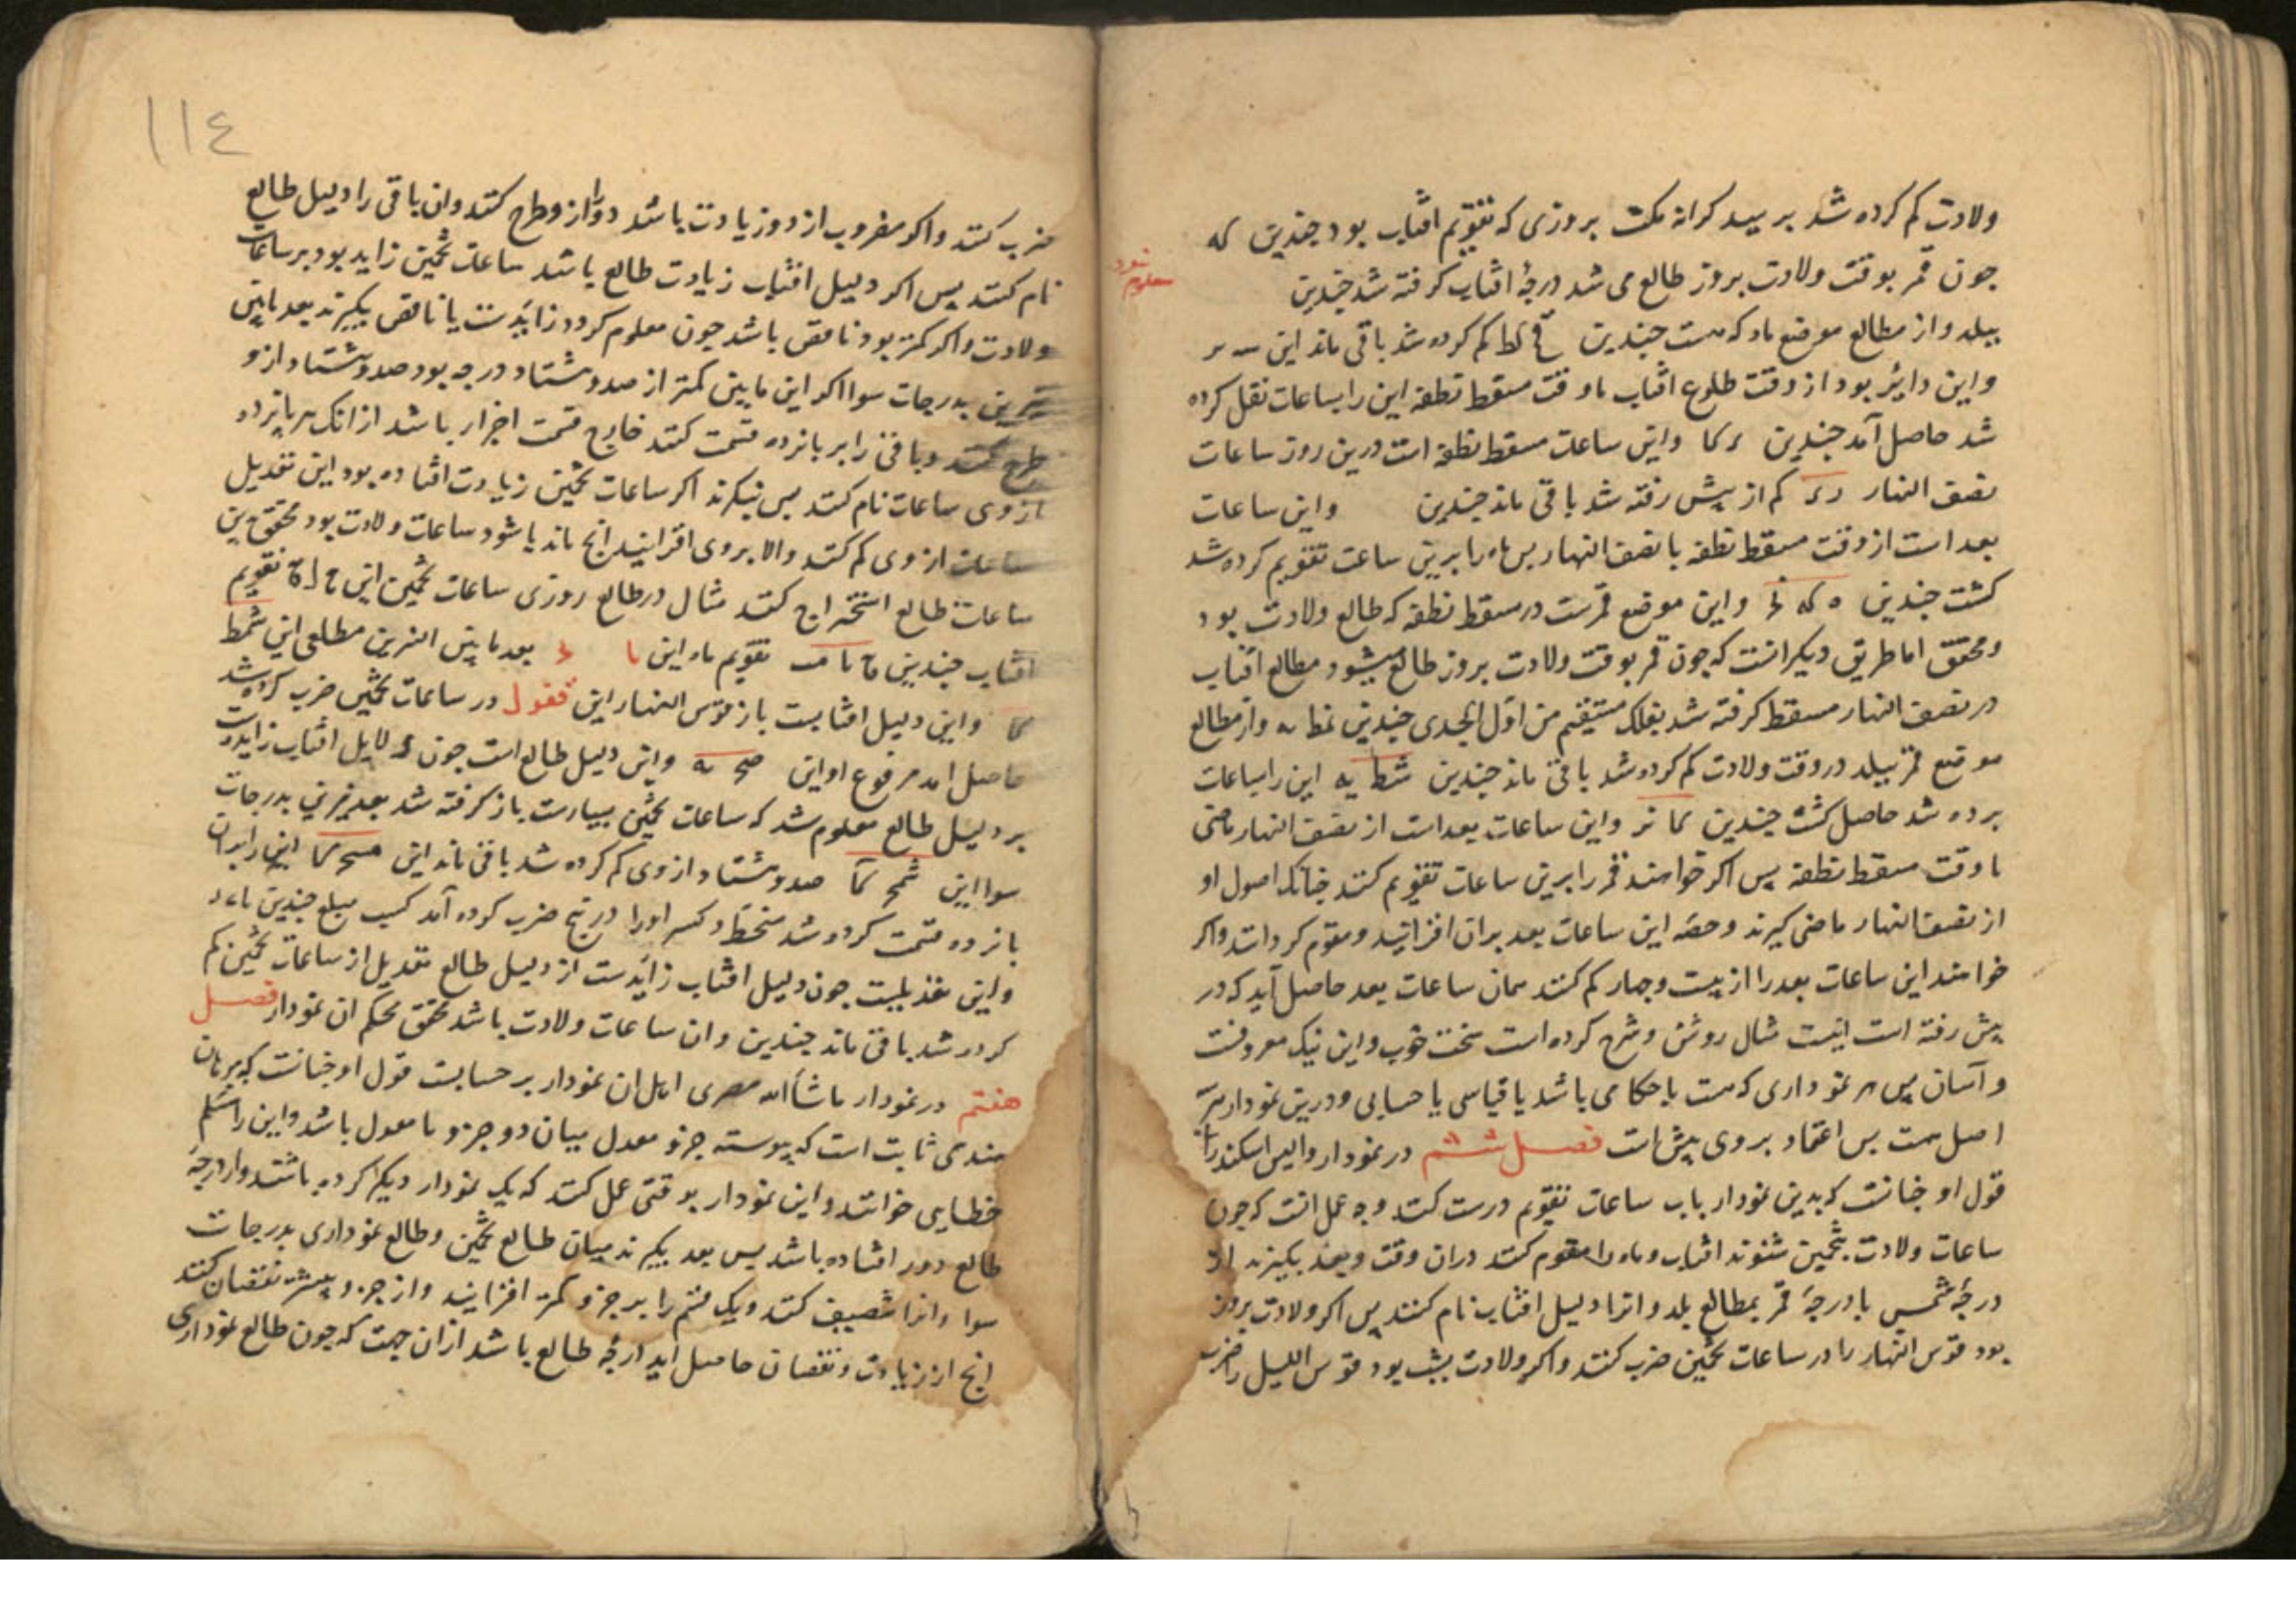 ولادت کم کرده شد بر سید کرانه مکث بروزی که تقویم افتاب بود جندین که
جون قمر بوقت ولادت بروز طالع می شد درجهٔ افتاب کرفته شد جندین
ببلد و از مطالع موضع ماه که هست جندین لط کم کرده شد باقی ماند این
و این دایر بود از وقت طلوع افتاب تا وقت مسقط نطفه این را بساعات نقل کرده
شد حاصل آمد جندین و این ساعات مسقط نطفه است درین روز ساعات
نصف النهار کم از پیش رفته شد باقی ماند جندین و این ساعات
بعد است از وقت مسقط نطفه با نصف النهار بس ماه را برین ساعت تقویم کرده شد
کشت جندین ه که و این موضع قمرست در مسقط نطفه که طالع ولادت بود
و محقق اما طریق دیکر انست که جون قمر بوقت ولادت بروز طالع میشود مطالع افتاب
در نصف النهار مسقط کرفته شد بفلک مستقیم من اول الجدی جندین نط ـه و از مطالع
موضع قمر ببلد در وقت ولادت کم کرده شد باقی ماند جندین شط یه این را بساعات
برده شد حاصل کشت جندین کا نر و این ساعات بعد است از نصف النهار ماضی
تا وقت مسقط نطفه پس اکر خواهند قمر را برین ساعات تقویم کنند جنانک اصول او
از نصف النهار ماضی کیرند و حصه این ساعات بعد بران افزایند و مقوم کردانند و اکر
خواهند این ساعات بعد را از بیست و جهار کم کنند همان ساعات بعد حاصل آید که در
پیش رفته است اینست مثال روشن و شرح کرده است سخت خوب و این نیک معروفست
و آسان پس هر نموداری که هست یا حکامی باشد یا قیاسی یا حسابی و درین نمودار هر سه
اصل هست بس اعتماد بر وی بیش است فصل ششم در نمودار والیس اسکندرانی
قول او جنانست که بدین نمودار باب ساعات تقویم درست کنند وجه عمل انست که جون
ساعات ولادت بتخمین شنوند افتاب و ماه را مقوم کنند دران وقت و بعد بکیرند از
درجهٔ شمس با درجهٔ قمر بمطالع بلد و انرا دلیل افتاب نام کنند پس اکر ولادت بروز
بود قوس النهار را در ساعات تخمین ضرب کنند و اکر ولادت بشب بود قوس اللیل را ضرب
شود
معلوم
١١٤
ضرب کنند و اکر مضروب از دور زیادت باشد دور را ازو طرح کنند و ان باقی را دلیل طالع
نام کنند پس اکر دلیل افتاب زیادت طالع باشد ساعات تخمین زاید بود بر ساعات
ولادت و اکر کمتر بود ناقص باشد جون معلوم کردد زایدست یا ناقص بکیرند بعد مابین
نیرین بدرجات سوا اکر این مابین کمتر از صد و هشتاد درجه بود صد و هشتاد ازو
طرح کنند و باقی را بر بانزده قسمت کنند خارج قسمت اجزا باشد از انک هر بانزده
از وی ساعات نام کنند پس بنکرند اکر ساعات تخمین زیادت افتاده بود این تعدیل
ساعات از وی کم کنند والا بروی افزایند انچ ماند یا شود ساعات ولادت بود محقق بدین
ساعات طالع استخراج کنند مثال در طالع روزی ساعات تخمین این تقویم
افتاب جندین تقویم ماه این بعد مابین النیرین مطلعی این شمط
کا و این دلیل افتابست باز قوس النهار این در ساعات تخمین ضرب کرده شد
حاصل امد مرفوع او این صح ـه و این دلیل طالع است جون دلایل افتاب زایدست
بر دلیل طالع معلوم شد که ساعات تخمین بسیارست باز کرفته شد بعد نیرین بدرجات
سوا این شمح کا صد و هشتاد از وی کم کرده شد باقی ماند این مسح کا این را بران
بانزده قسمت کرده شد منحط و کسر او را در نج ضرب کرده آمد کسب مبلغ جندین
و این تعدیلست جون دلیل افتاب زایدست از دلیل طالع تعدیل از ساعات تخمین کم
کرده شد باقی ماند جندین و ان ساعات ولادت باشد محقق محکم ان نمودار فصل
هفتم در نمودار ماشاالله مصری اما ان نمودار بر حسابست قول او جنانست که برهان
هندی ثابت است که پیوسته جزو معدل میان دو جزو نا معدل باشد و این را شکلم
خطایی خوانند و این نمودار بوقتی عمل کنند که یک نمودار دیکر کرده باشند و از درجهٔ
طالع دور افتاده باشد پس بعد بکیرند میان طالع تخمین و طالع نموداری بدرجات
سوا و انرا تنصیف کنند و یک قسم را بر جزو کمتر افزایند و از جزو بیشتر نقصان کنند
انچ از زیادت و نقصان حاصل اید درجهٔ طالع باشد ازان جهت که جون طالع نموداری